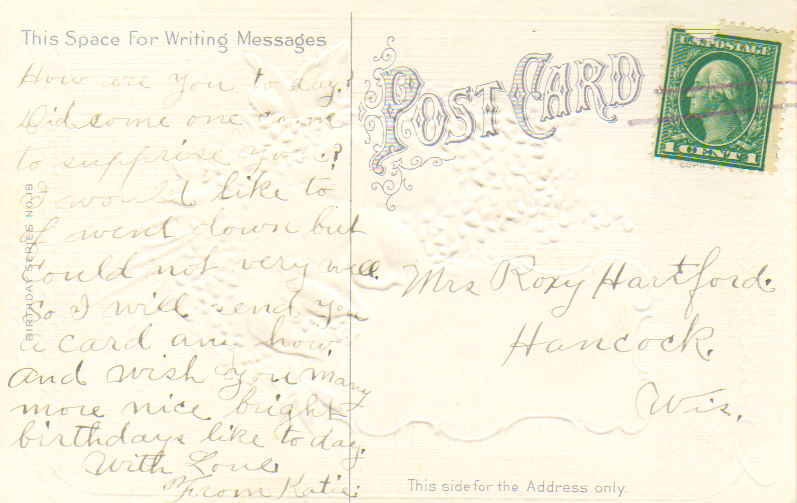 This Space For Writing Messages
How are you to day?
Did some one come
to supprise you?
I would like to
of went down but
could not very well.
So I will send you
a card any how.
And wish you many
more nice bright
birthdays like to day.
With Love
From Katie.
BIRTHDAY SERIES NO. 19
POST CARD
U.S. POSTAGE
1 CENT 1
Mrs Roxy Hartford.
Hancock.
Wis.
This side for the Address only.